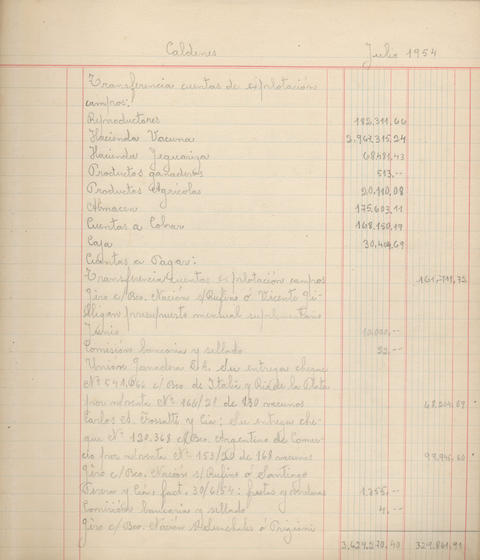 Caldenes Julio 1954
Transferencia cuentas de explotación
campos:
Reproductores 182,311,66
Hacienda Vacuna 2.963.315,24
Hacienda Yeguariza 68.481,43
Productos ganaderos 513,--
Productos Agrícolas 20,110,08
Almacen 175,603,11
Cuentas a Cobrar 168.150,19
Caja 30,404,69
Cuentas a Pagar:
Transferencia cuentas explotación campos
Giro c/Bco. Nación s/Rufino ó Vicente Gi-
lligan presupuesto mensual suplementario
Junio 10,000,--
Comisión bancaria y sellado 32,--
Union Ganadera S.A. Su entrega cheque
Nº 541,066 c/Bco. de Italia y Rio de la Plata
por n/venta Nº 166/21 de 130 vacunos 68.204,69
Carlos A. Rossatti y Cia: Su entrega che-
que Nº 120.368 c/Bco. Argentino de Comer-
cio por n/venta Nº 153/20 de 168 vacunos
Giro c/Bco. Nación s/Rufino ó Santiago
y Cia: fact. 30/6/54: y 1,755,--
Comisión bancaria y sellado 4,--
Giro c/Bco. Nación ó
3,624,270,40 329,861,91